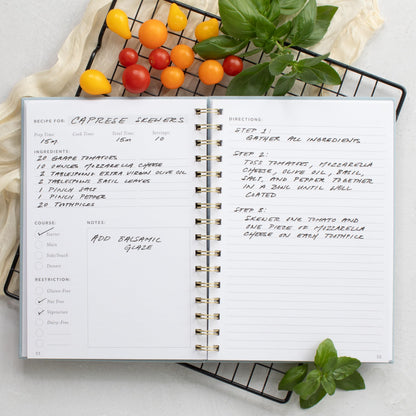 RECIPE FOR: CAPRESE SKEWERS
Prep Time: Cook Time: Total Time: Servings:
15m 15m 10
INGREDIENTS:
20 GRAPE TOMATOES
10 OUNCES MOZZARELLA CHEESE
2 TABLESPOONS EXTRA VIRGIN OLIVE OIL
2 TABLESPOONS BASIL LEAVES
1 PINCH SALT
1 PINCH PEPPER
20 TOOTHPICKS
COURSE:
Starter
Main
Side/Snack
Dessert
RESTRICTION:
Gluten-Free
Nut Free
Vegetarian
Dairy-Free
NOTES:
ADD BALSAMIC
GLAZE
DIRECTIONS:
STEP 1:
GATHER ALL INGREDIENTS
STEP 2:
TOSS TOMATOES, MOZZARELLA
CHEESE, OLIVE OIL, BASIL,
SALT, AND PEPPER TOGETHER
IN A BOWL UNTIL WELL
COATED
STEP 3:
SKEWER ONE TOMATO AND
ONE PIECE OF MOZZARELLA
CHEESE ON EACH TOOTHPICK